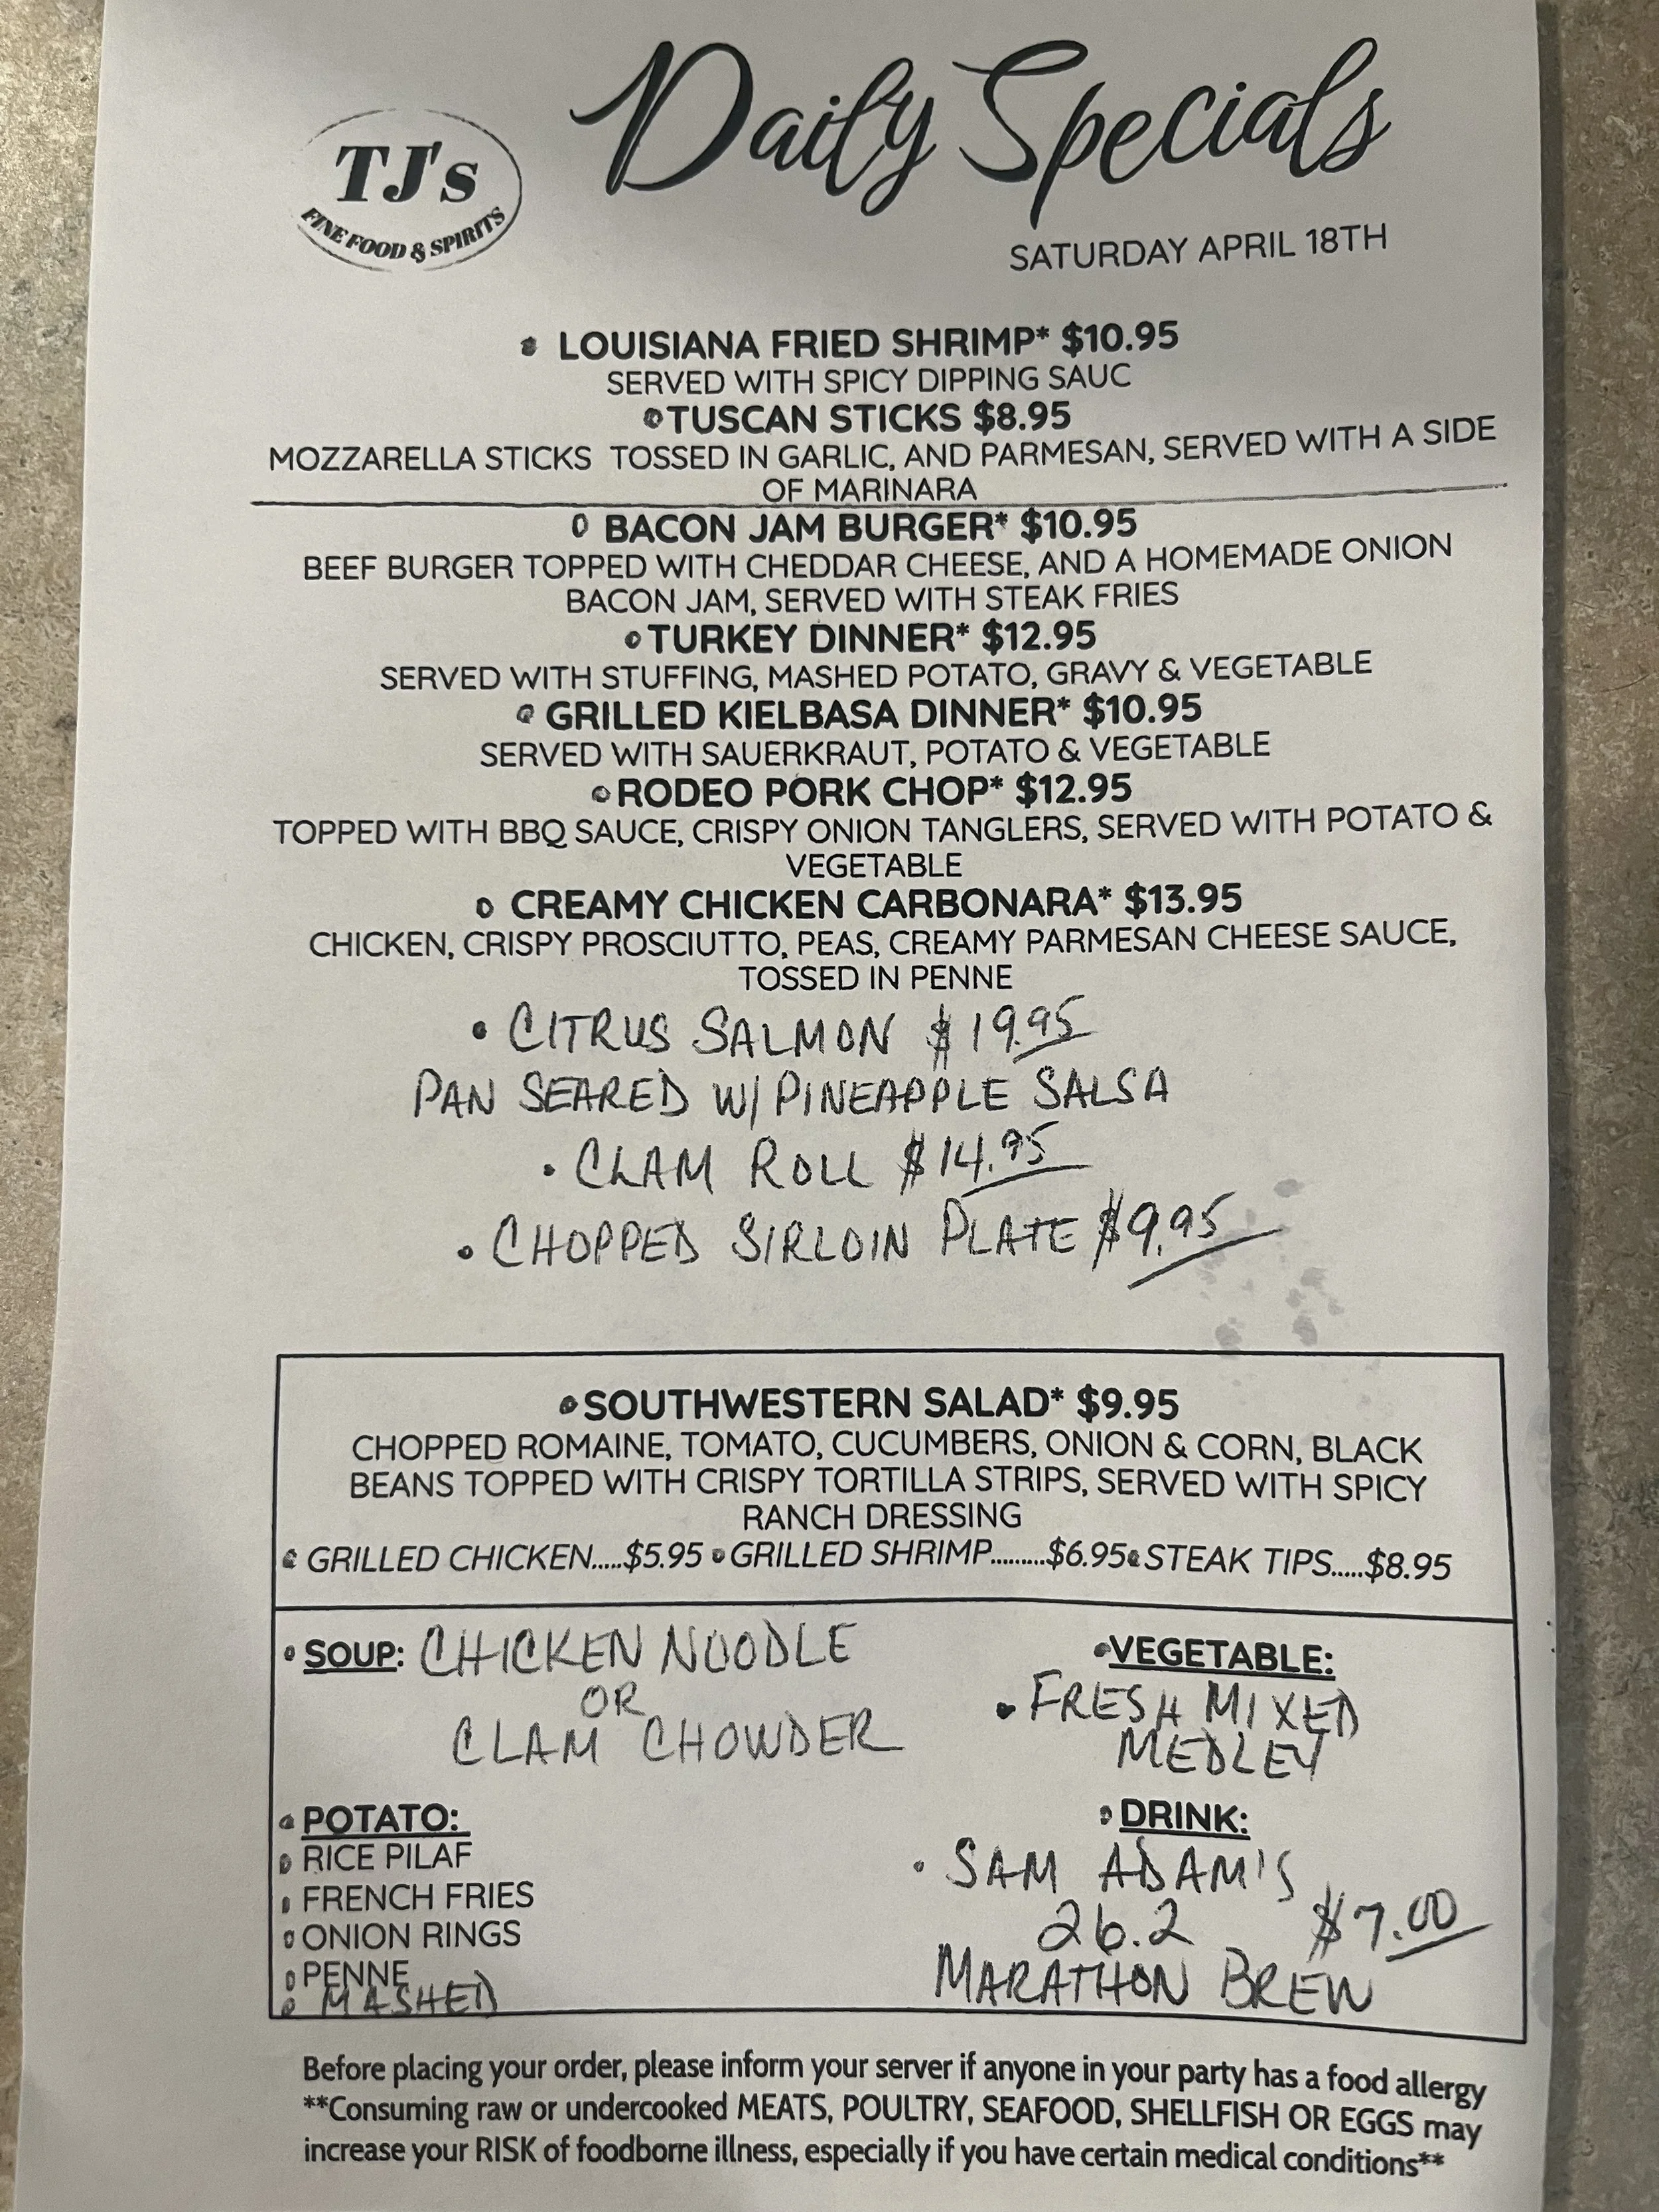 Daily Specials
TJ's
FINE FOOD & SPIRITS
SATURDAY APRIL 18TH
LOUISIANA FRIED SHRIMP* $10.95
SERVED WITH SPICY DIPPING SAUC
TUSCAN STICKS $8.95
MOZZARELLA STICKS TOSSED IN GARLIC, AND PARMESAN, SERVED WITH A SIDE
OF MARINARA
BACON JAM BURGER* $10.95
BEEF BURGER TOPPED WITH CHEDDAR CHEESE, AND A HOMEMADE ONION
BACON JAM, SERVED WITH STEAK FRIES
TURKEY DINNER* $12.95
SERVED WITH STUFFING, MASHED POTATO, GRAVY & VEGETABLE
GRILLED KIELBASA DINNER* $10.95
SERVED WITH SAUERKRAUT, POTATO & VEGETABLE
RODEO PORK CHOP* $12.95
TOPPED WITH BBQ SAUCE, CRISPY ONION TANGLERS, SERVED WITH POTATO &
VEGETABLE
CREAMY CHICKEN CARBONARA* $13.95
CHICKEN, CRISPY PROSCIUTTO, PEAS, CREAMY PARMESAN CHEESE SAUCE,
TOSSED IN PENNE
• CITRUS SALMON $19.95
PAN SEARED W/ PINEAPPLE SALSA
• CLAM ROLL $14.95
• CHOPPED SIRLOIN PLATE $9.95
SOUTHWESTERN SALAD* $9.95
CHOPPED ROMAINE, TOMATO, CUCUMBERS, ONION & CORN, BLACK
BEANS TOPPED WITH CRISPY TORTILLA STRIPS, SERVED WITH SPICY
RANCH DRESSING
GRILLED CHICKEN.....$5.95 GRILLED SHRIMP.........$6.95 STEAK TIPS.....$8.95
SOUP: CHICKEN NOODLE
OR
CLAM CHOWDER
VEGETABLE:
• FRESH MIXED
MEDLEY
POTATO:
RICE PILAF
FRENCH FRIES
ONION RINGS
PENNE
MASHED
DRINK:
• SAM ADAM'S
26.2 $7.00
MARATHON BREW
Before placing your order, please inform your server if anyone in your party has a food allergy
**Consuming raw or undercooked MEATS, POULTRY, SEAFOOD, SHELLFISH OR EGGS may
increase your RISK of foodborne illness, especially if you have certain medical conditions**